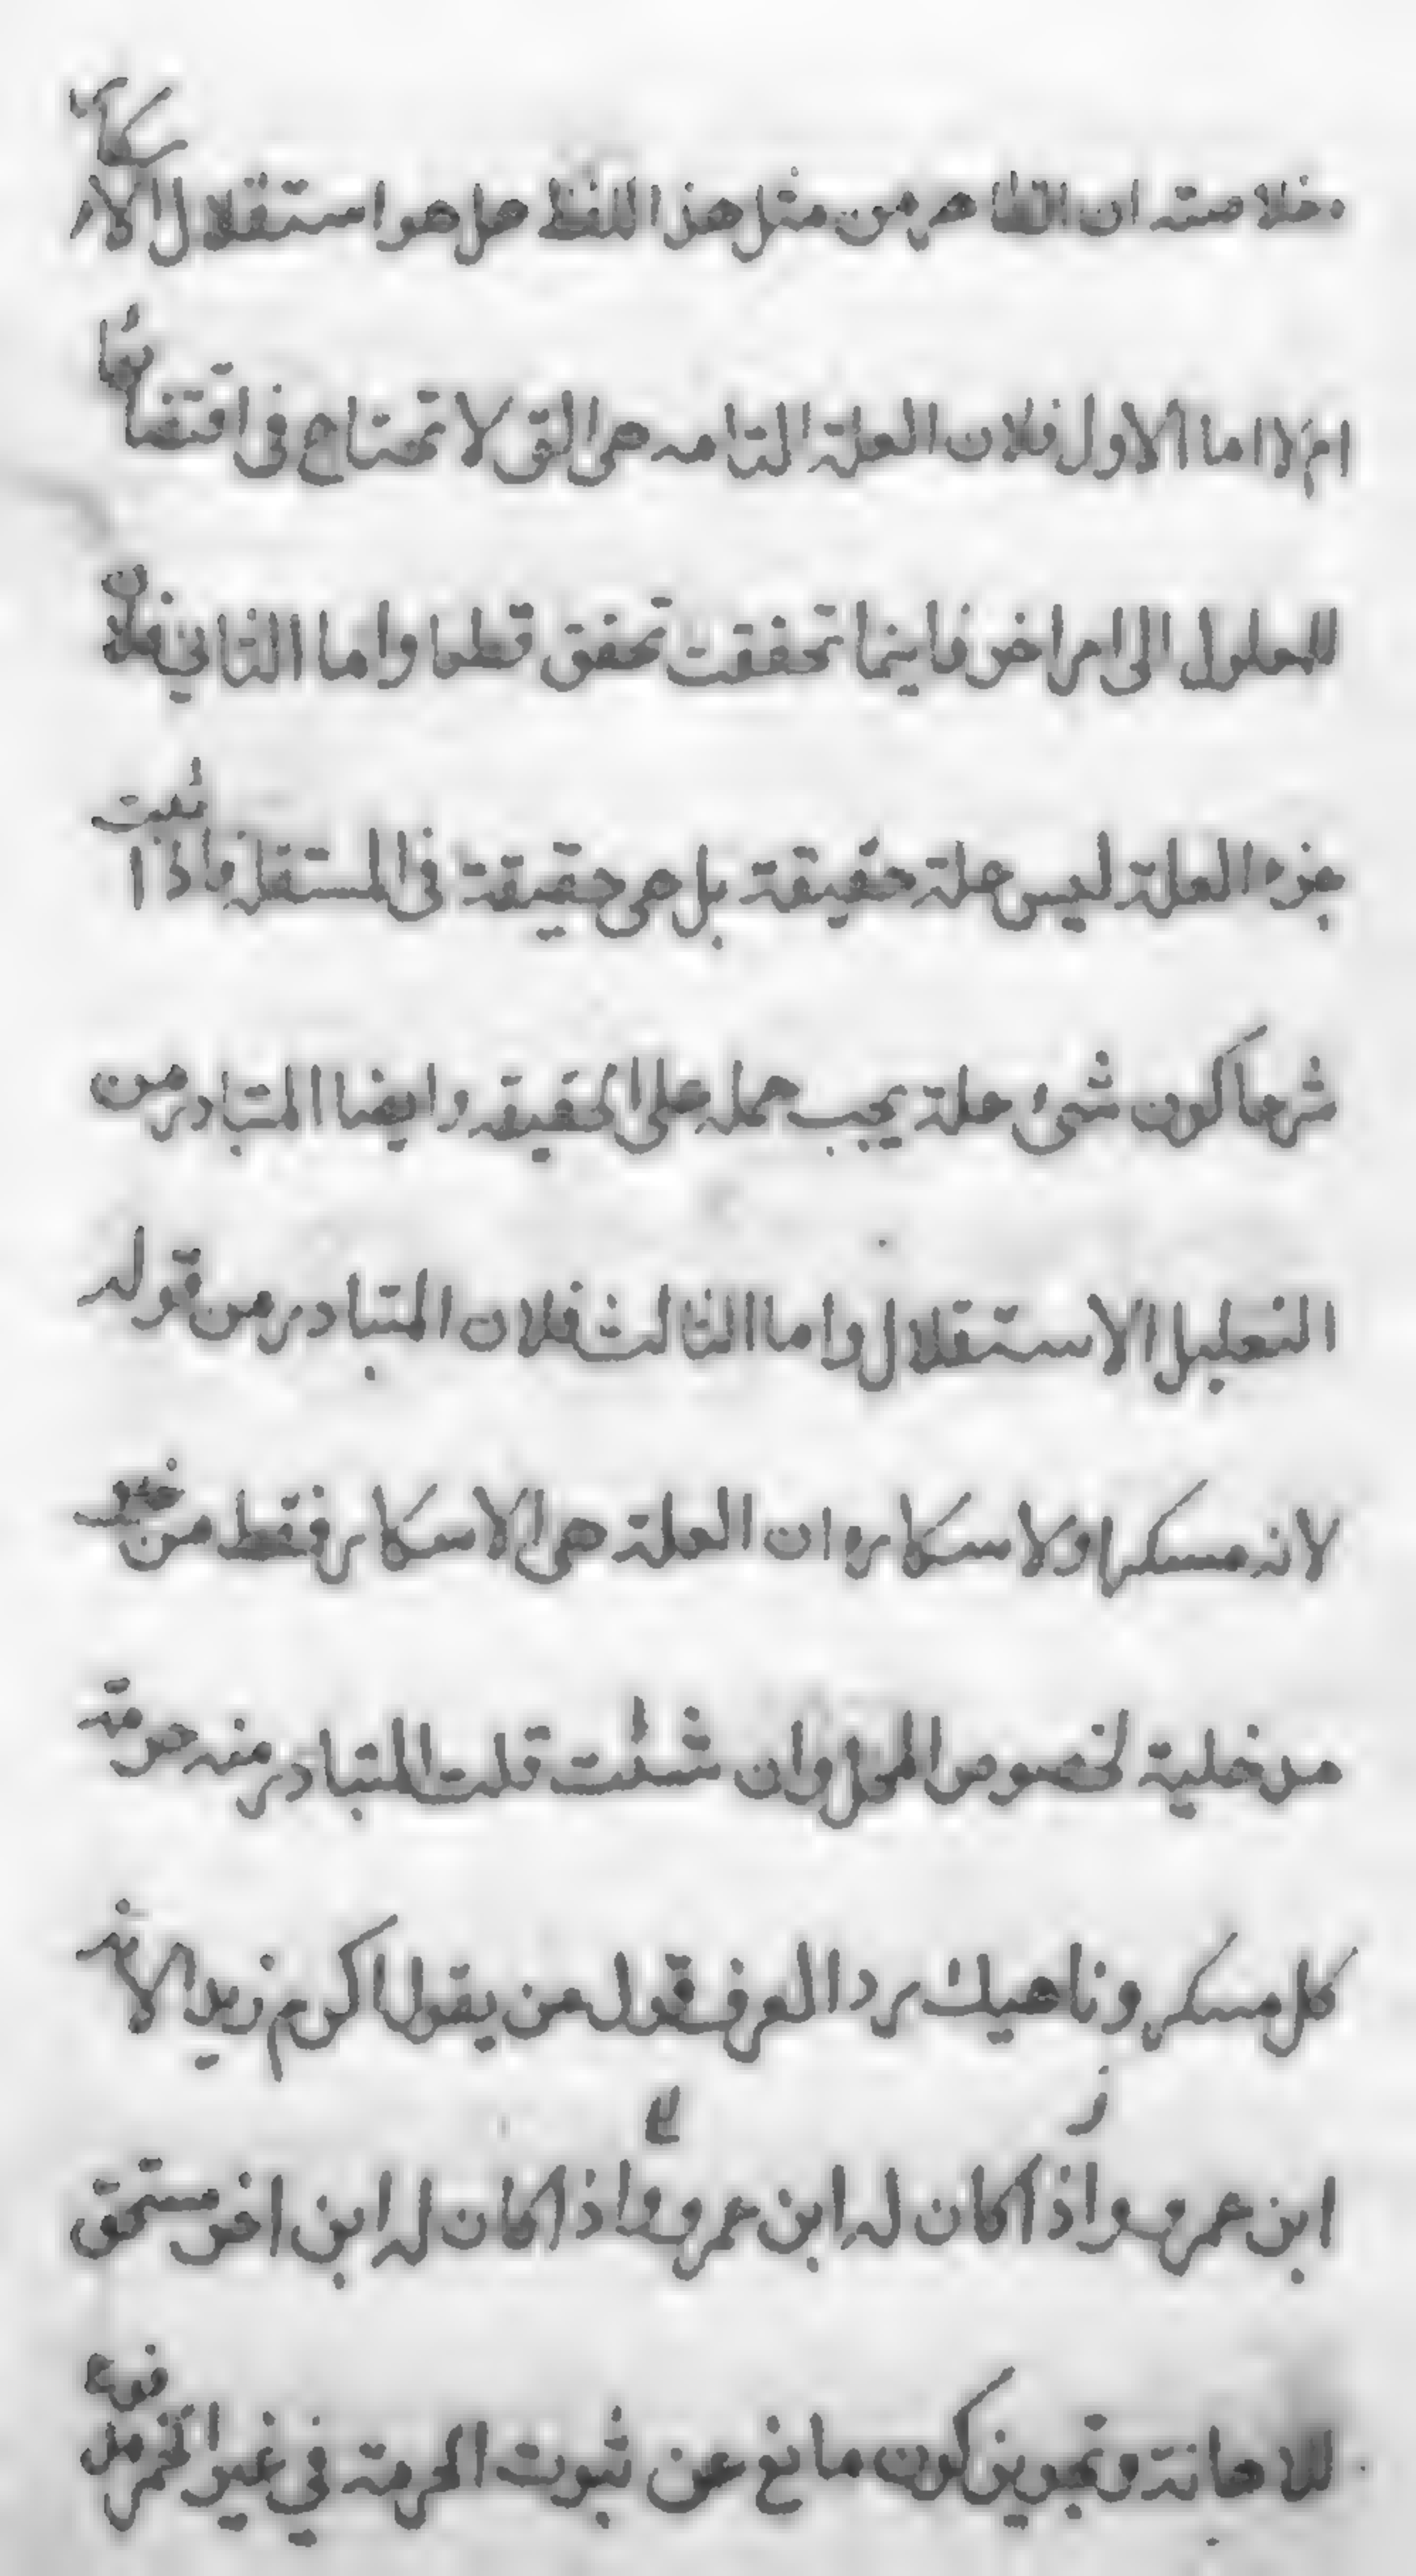 خلاصته ان الظاهر من مثل هذا اللفظ هل هو استقلال الاسكار
ام لا اما الاول فلان العلة التامه هى التى لا تحتاج فى اقتضائها
للمعلول الى امر اخر فاينما تحققت تحقق قطعا واما الثاني فلان
جزء العلة ليس علة حقيقة بل هى حقيقة فى المستقلة فاذا ثبت
شرعا كون شىء علة يجب حمله على الحقيقه وايضا المتبادر من
التعليل الاستقلال واما الثالث فلان المتبادر من قوله
لانه مسكر او لاسكاره ان العلة هى الاسكار فقط من غير
مدخلية لخصوص المحل وان شئت قلت المتبادر منه حرمة
كل مسكر وناهيك رد العرف قول من يقول اكرم زيدا لانه
ابن عمرو واذا كان له ابن عمرو واذا كان له ابن اخر مستحق
للاهانة وتجويز كون مانع عن ثبوت الحرمة في غير الخمر مدفوع